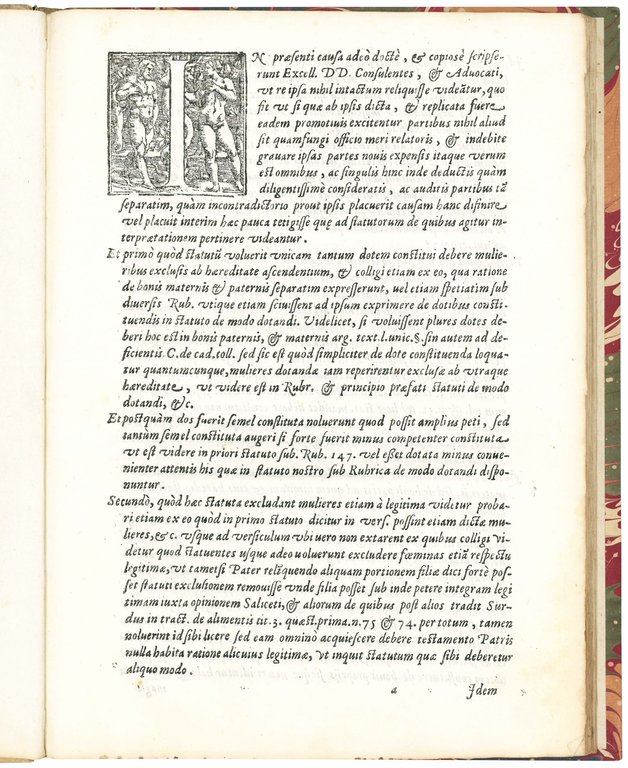 IN præsenti causa adeò doctè, & copiosè scripse-
runt Excell. DD. Consulentes, & Aduocati,
vt re ipsa nihil intactum reliquisse videātur, quo
fit vt si quæ ab ipsis dicta, & replicata fuere
eadem promotiuis excitentur partibus nihil aliud
sit quamfungi officio meri relatoris, & indebitè
grauare ipsas partes nouis expensis itaque verum
est omnibus, ac singulis hinc inde deductis quàm
diligentissimè consideratis, ac auditis partibus tā
separatim, quàm incontradictorio prout ipsis placuerit causam hanc difinire
vel placuit interim hæc pauca tetigisse quę ad statutorum de quibus agitur in-
terprætationem pertinere videantur.
Et primò quòd statutū voluerit vnicam tantum dotem constitui debere mulie-
ribus exclusis ab hæreditate ascendentium, & colligi etiam ex eo, qua ratione
de bonis maternis & paternis separatim expresserunt, vel etiam spetiatim sub
diuersis Rub. vtique etiam sciuissent ad ipsum exprimere de dotibus consti-
tuendis in statuto de modo dotandi. Videlicet, si voluissent plures dotes de-
beri hoc est in bonis paternis, & maternis arg. text.l.unic.§.sin autem ad de-
ficientis C.de cad.toll. sed sic est quòd simpliciter de dote constituenda loqua-
tur quantumcunque,mulieres dotandæ iam reperirentur exclusæ ab vtraque
hæreditate, vt videre est in Rubr. & principio præfati statuti de modo
dotandi, &c.
Et postquàm dos fuerit semel constituta noluerunt quod possit amplius peti, sed
tantum semel constituta augeri si forte fuerit minus competenter constituta
vt est videre in priori statuto sub. Rub. 147. vel esset dotata minus conue-
nienter attentis his quæ in statuto nostro sub Rubrica de modo dotandi dispo-
nuntur.
Secundò, quòd hæc statuta excludant mulieres etiam à legitima videtur proba-
ri etiam ex eo quòd in primo statuto dicitur in vers. possint etiam dictæ mu-
lieres,&c. vsque ad versiculum vbi vero non extarent ex quibus colligi vi-
detur quod statuentes usque adeo uoluerunt excludere fœminas etiā respectu
legitimæ,vt tametsi Pater relīquendo aliquam portionem filiæ dici fortè pos-
set statuti exclusionem remouisse vnde filia posset sub inde petere integram legi
timam iuxta opinionem Saliceti,& aliorum de quibus post alios tradit Sur-
dus in tract. de alimentis tit.3. quæst.prima.n.75 & 74. per totum, tamen
noluerint id sibi licere sed eam omninò acquiescere debere testamento Patris
nulla habita ratione alicuius legitimæ, vt inquit statutum quæ sibi deberetur
aliquo modo.
a Idem